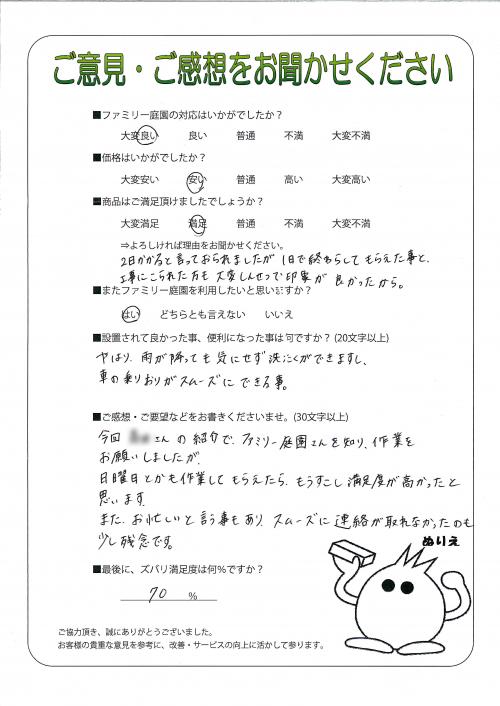 ご意見・ご感想をお聞かせください
■ファミリー庭園の対応はいかがでしたか？
大変良い 良い 普通 不満 大変不満
■価格はいかがでしたか？
大変安い 安い 普通 高い 大変高い
■商品はご満足頂けましたでしょうか？
大変満足 満足 普通 不満 大変不満
⇒よろしければ理由をお聞かせください。
2日かかると言っておられましたが 1日で終わらしてもらえた事と、
工事にこられた方も 大変しんせつで印象が 良かったから。
■またファミリー庭園を利用したいと思いますか？
はい どちらとも言えない いいえ
■設置されて良かった事、便利になった事は何ですか？(20文字以上)
やはり、雨が降っても気にせず洗たくができますし、
車の乗りおりがスムーズにできる事。
■ご感想・ご要望などをお書きくださいませ。(30文字以上)
今回 さんの紹介で、ファミリー庭園さんを知り、作業を
お願いしましたが、
日曜日とかも作業してもらえたら、もうすこし満足度が高かったと
思います。
また、お忙しいと言う事もあり、スムーズに連絡が取れなかったのも
少し残念です。
ぬりえ
■最後に、ズバリ満足度は何％ですか？
70 ％
ご協力頂き、誠にありがとうございました。
お客様の貴重な意見を参考に、改善・サービスの向上に活かして参ります。